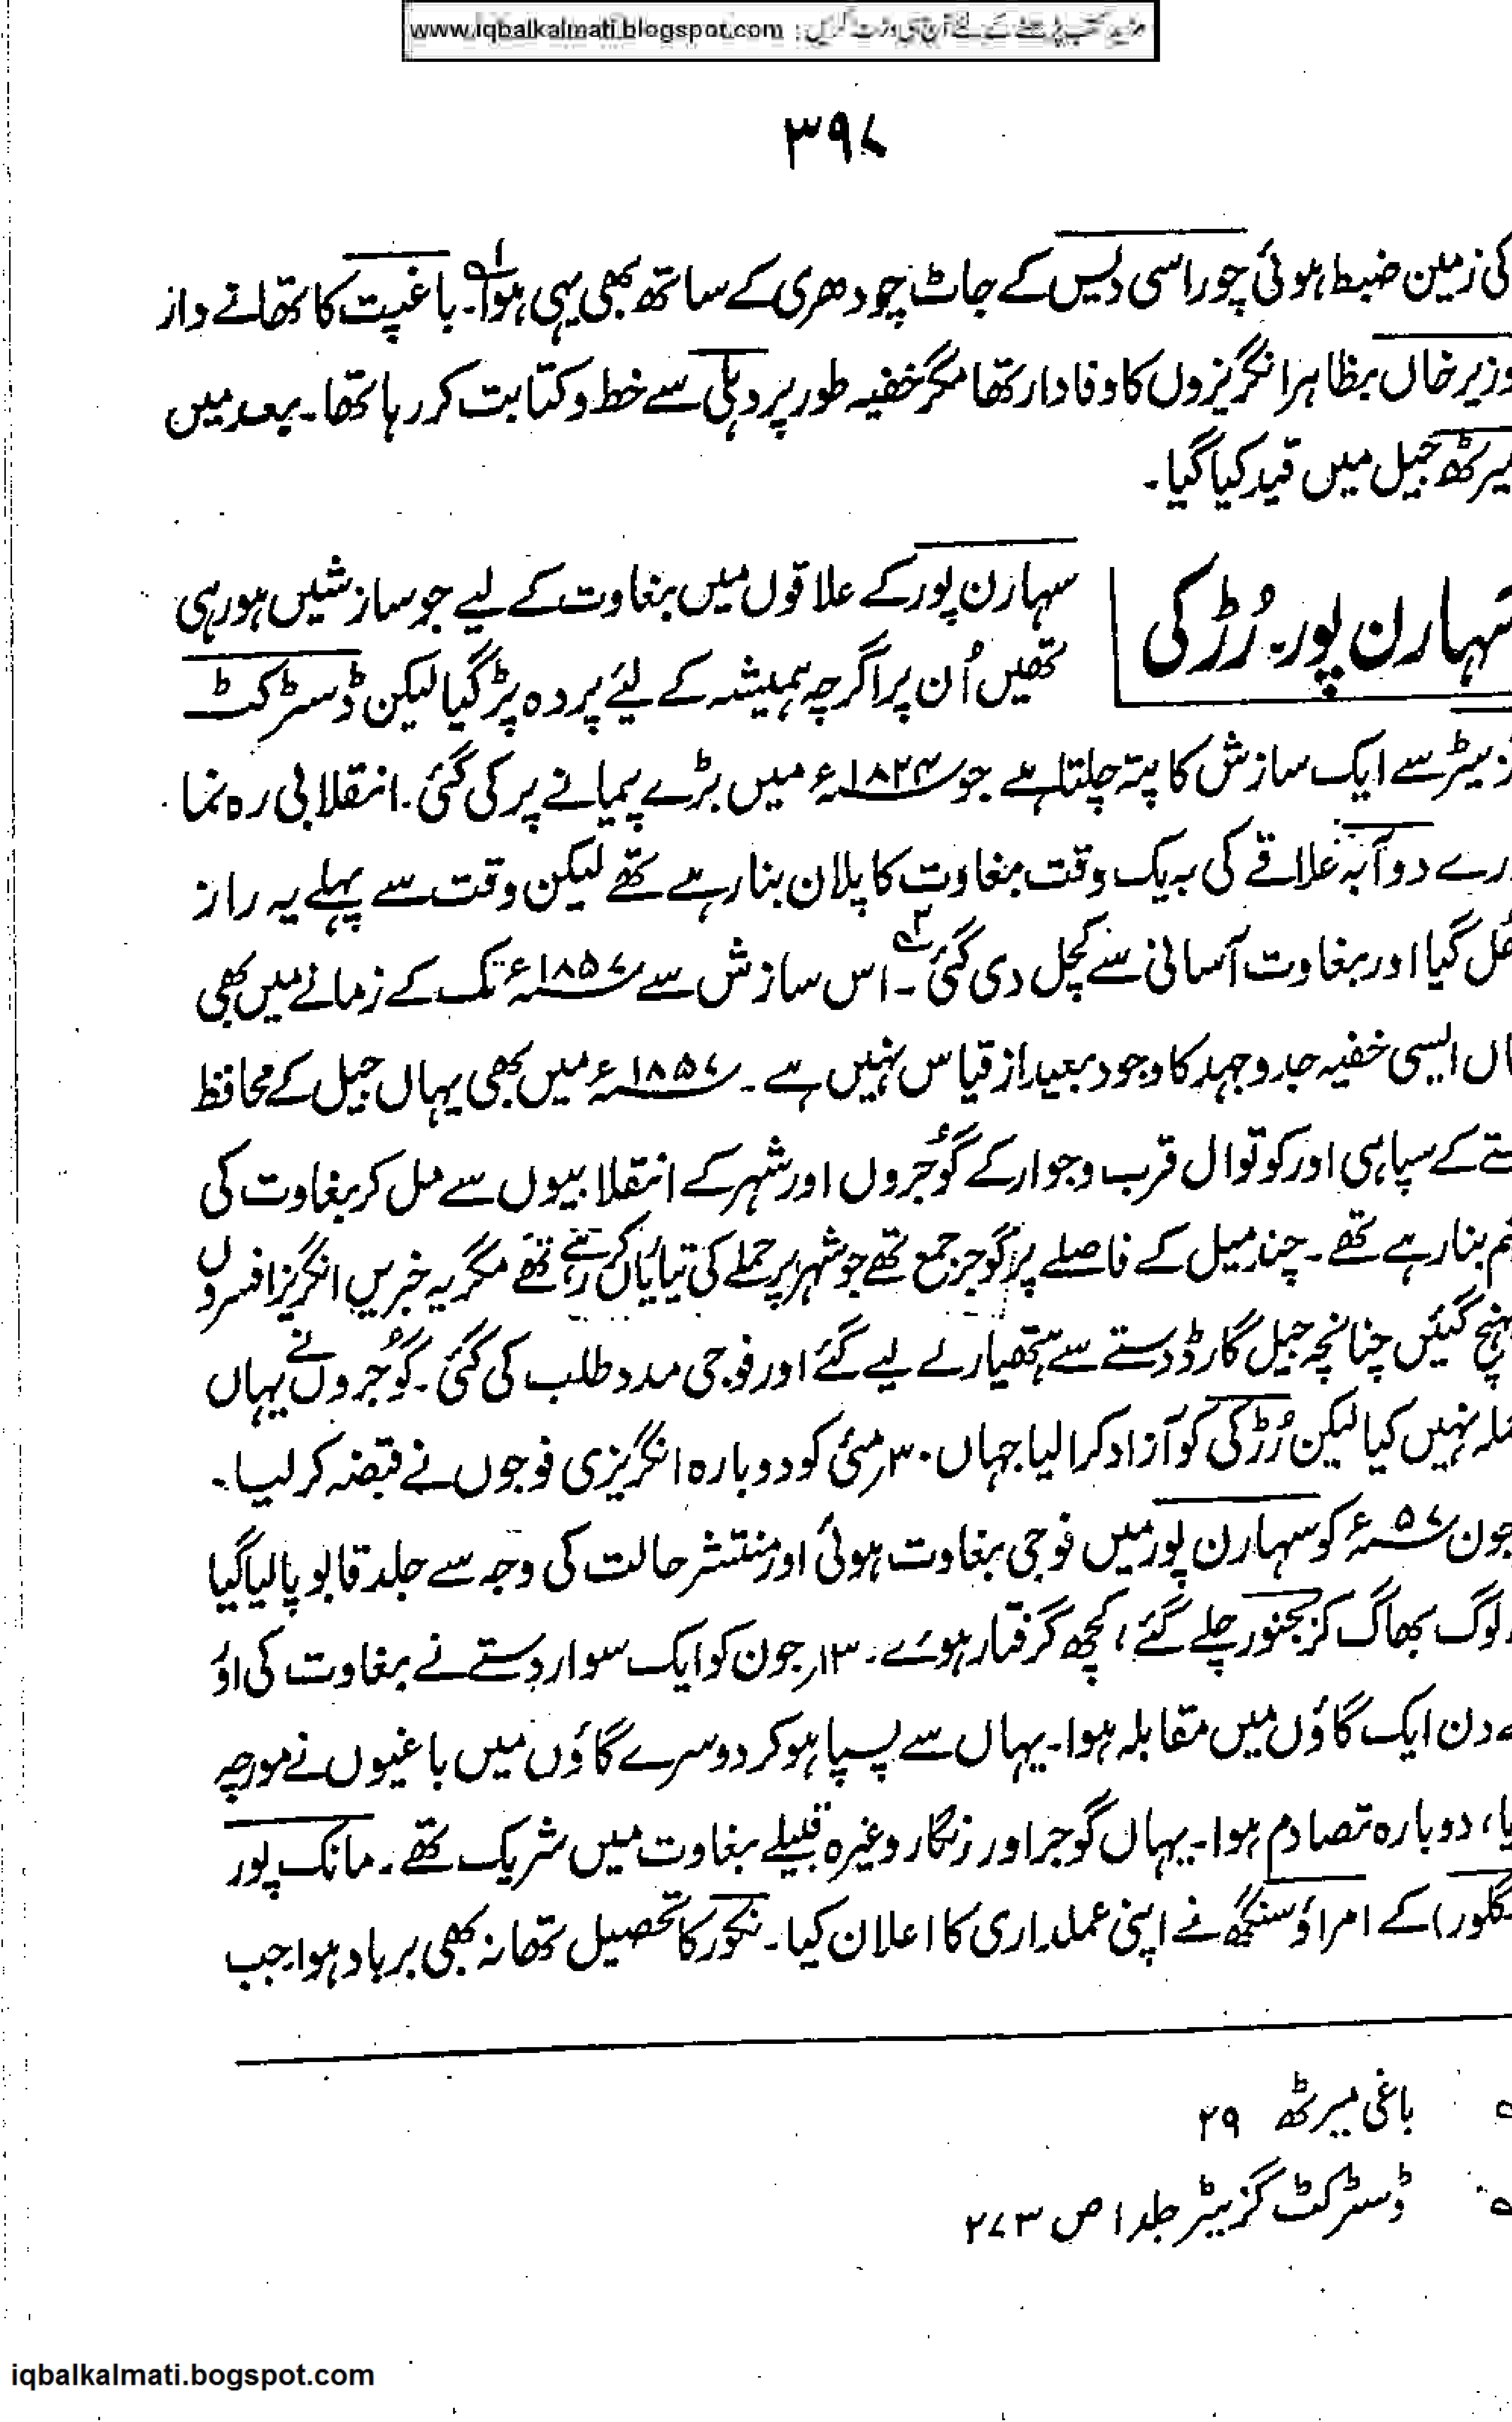 مزید کتب پڑھنے کے لئے آج ہی وزٹ کریں : www.iqbalkalmati.blogspot.com
۳۹۷
کی زمین ضبط ہوئی چوراسی دیس کے جاٹ چودھری کے ساتھ بھی یہی ہوا۱؎۔ باغپت کا تھانے دار
وزیر خاں بظاہر انگریزوں کا وفادار تھا مگر خفیہ طور پر دہلی سے خط و کتابت کر رہا تھا۔ بعد میں
میرٹھ جیل میں قید کیا گیا۔
سہارن پور۔ رُڑکی
سہارن پور کے علاقوں میں بغاوت کے لیے جو سازشیں ہو رہی
تھیں اُن پر اگرچہ ہمیشہ کے لیٔے پردہ پڑ گیا لیکن ڈسٹرکٹ
زیٹر سے ایک سازش کا پتہ چلتا ہے جو ۱۸۲۴ء میں بڑے پیمانے پر کی گئی۔ انقلابی رہ نما
رے دوآبہ علاقے کی بہ یک وقت بغاوت کا پلان بنا رہے تھے لیکن وقت سے پہلے یہ راز
کھل گیا اور بغاوت آسانی سے کچل دی گئی۲؎۔ اس سازش سے ۱۸۵۷ء تک کے زمانے میں بھی
اں ایسی خفیہ جدوجہد کا وجود بعید از قیاس نہیں ہے۔ ۱۸۵۷ء میں بھی یہاں جیل کے محافظ
تے کے سپاہی اور کوتوال قرب و جوار کے گوُجروں اور شہر کے انقلابیوں سے مل کر بغاوت کی
یم بنا رہے تھے۔ چند میل کے فاصلے پر گوجر جمع تھے جو شہر پر حملے کی تیاریاں کر رہے تھے مگر یہ خبریں انگریز افسروں
پہنچ گئیں چنانچہ جیل گارڈ دستے سے ہتھیار لے لیے گئے اور فوجی مدد طلب کی گئی۔ گوُجروں نے یہاں
ملہ نہیں کیا لیکن رُڑکی کو آزاد کرا لیا جہاں ۳۰؍مئی کو دوبارہ انگریزی فوجوں نے قبضہ کر لیا۔
جون ۵۷ء کو سہارن پور میں فوجی بغاوت ہوئی اور منتشر حالت کی وجہ سے جلد قابو پا لیا گیا
لوگ بھاگ کر بجنور چلے گئے، کچھ گرفتار ہوئے۔ ۱۳؍جون کو ایک سوار دستے نے بغاوت کی اور
ے دن ایک گاؤں میں مقابلہ ہوا۔ یہاں سے پسپا ہو کر دوسرے گاؤں میں باغیوں نے مورچہ
یا، دوبارہ تصادم ہوا۔ یہاں گوجر اور رنگار وغیرہ قبیلے بغاوت میں شریک تھے۔ مانک پور
گلور) کے امراؤ سنگھ نے اپنی عملداری کا اعلان کیا۔ نکور کا تحصیل تھانہ بھی برباد ہوا جب
باغی میرٹھ ۲۹
ڈسٹرکٹ گزیٹر جلد ۱ ص ۲۷۳
iqbalkalmati.bogspot.com